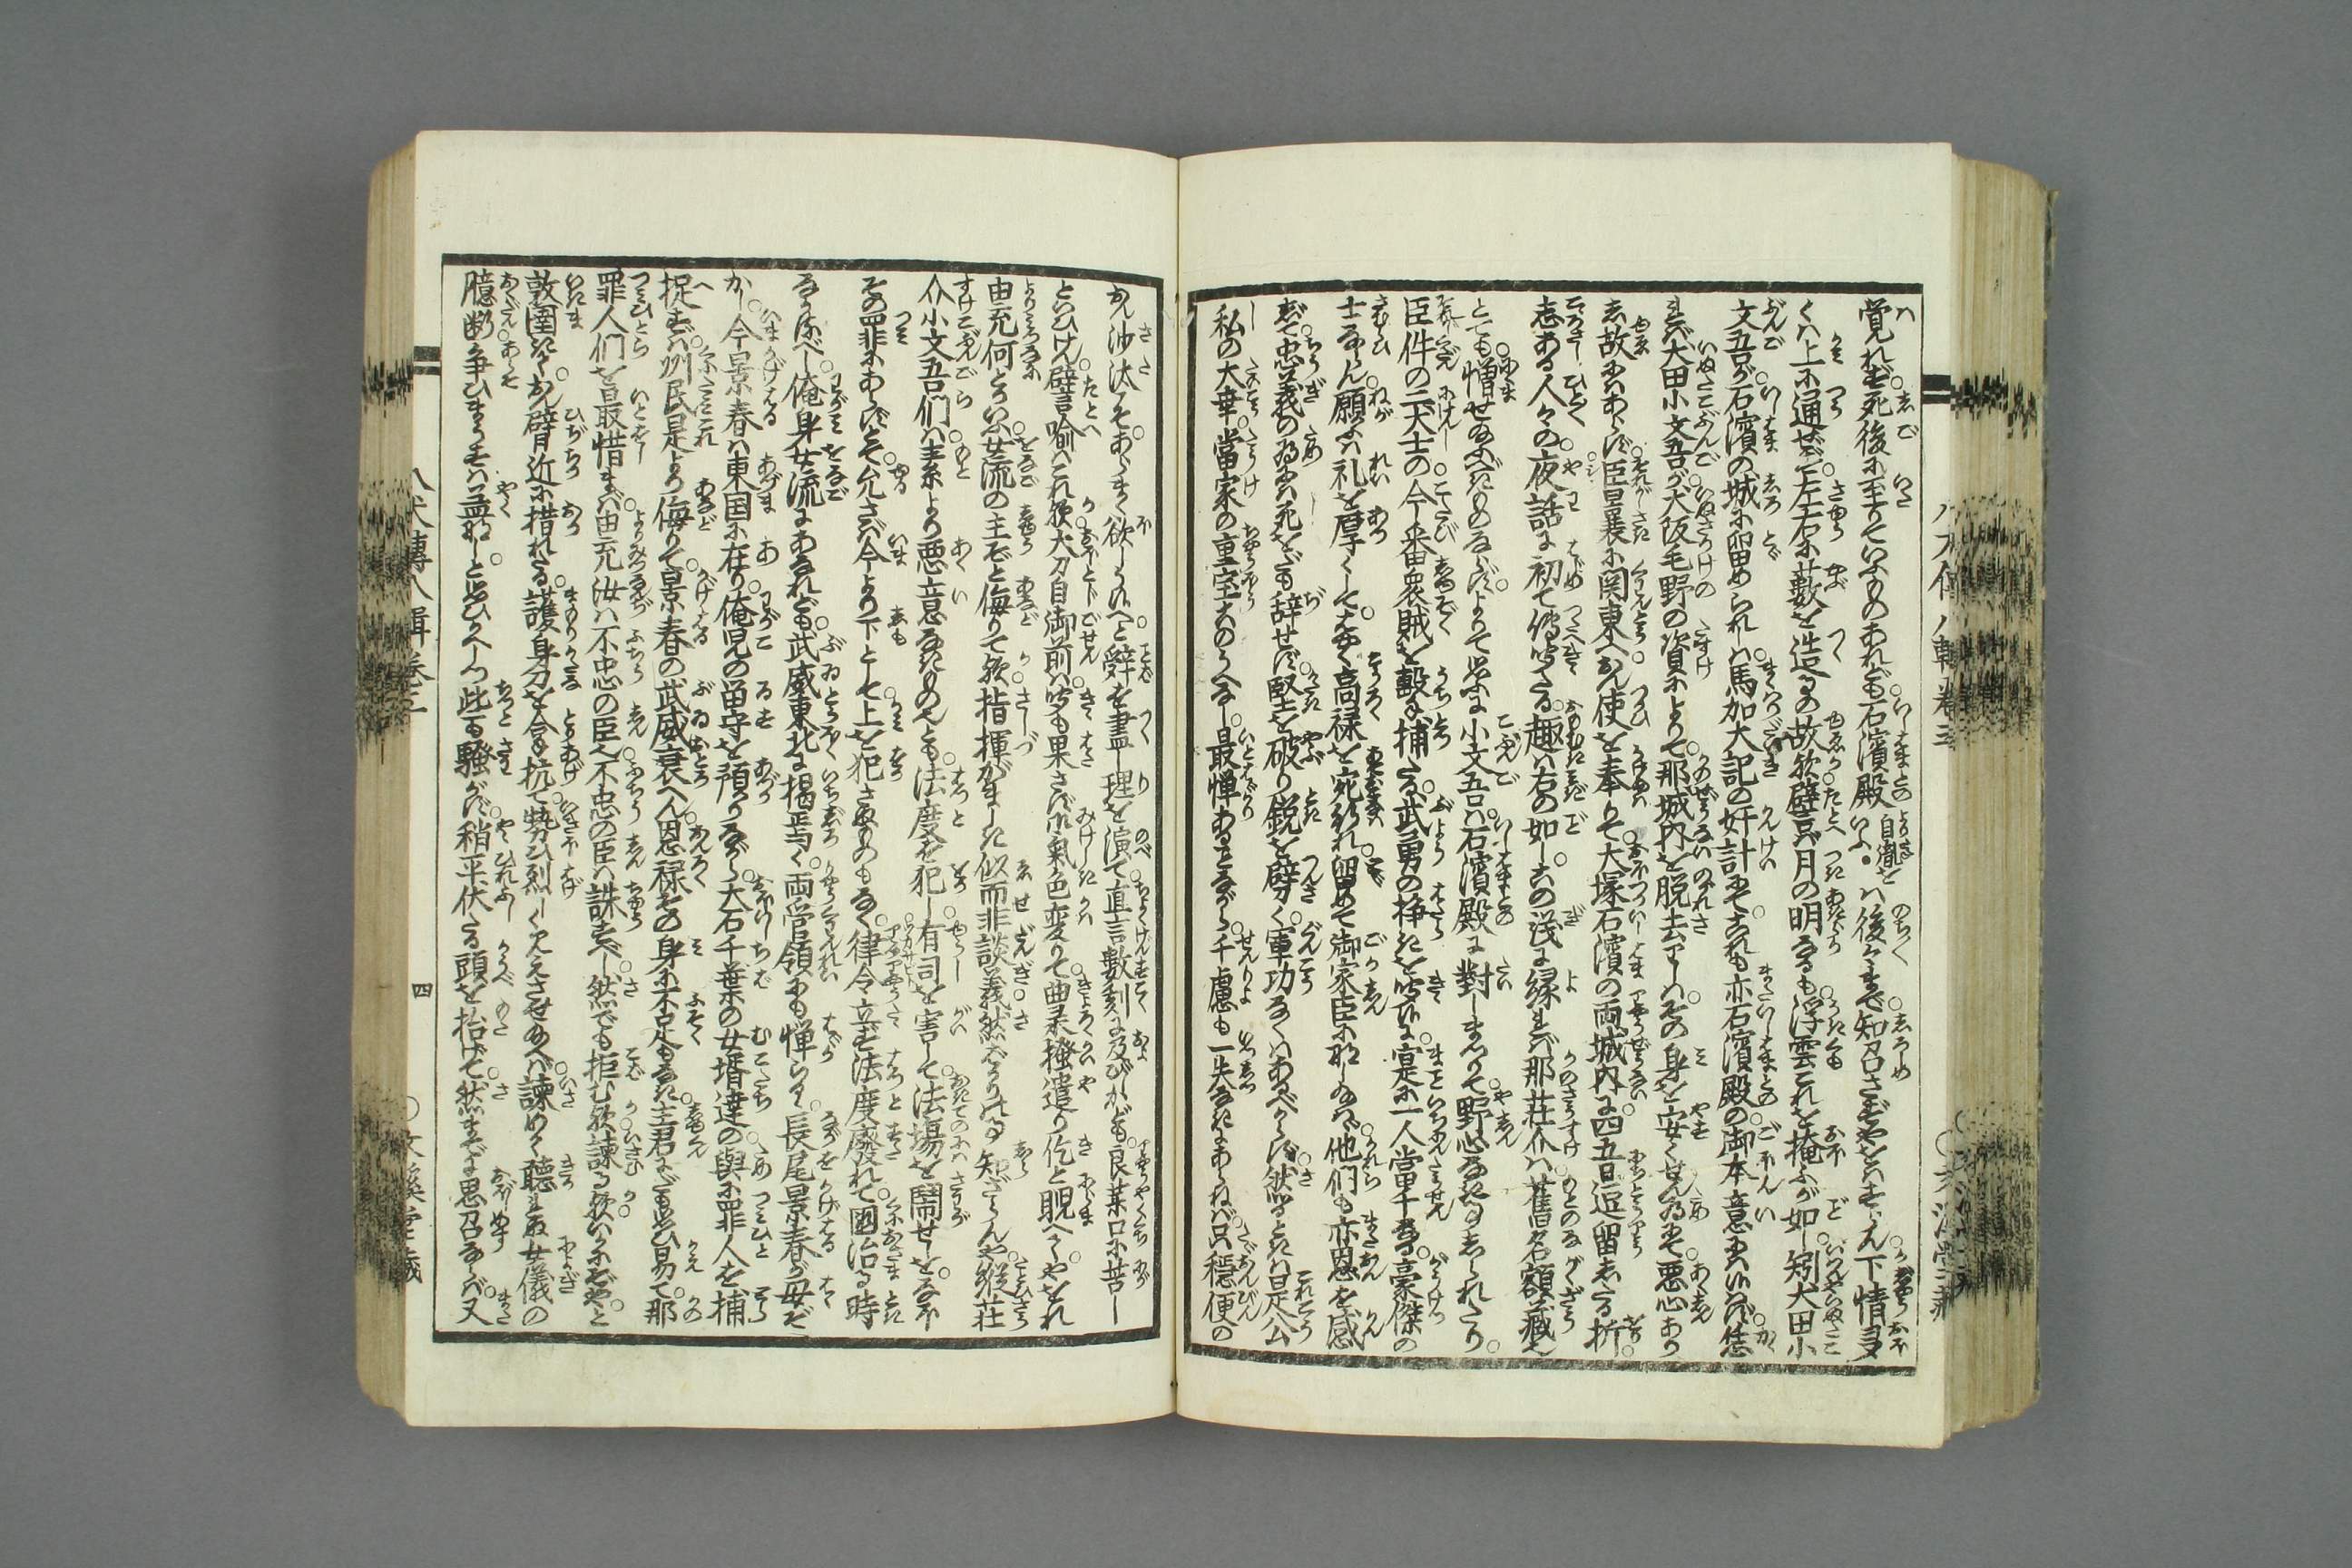 覚れず死後に至りていふものあれども石濱殿自胤をいふ。ハ後々まで知召さずやをはすらん下情多
くハ上に通ぜず左右に藪を造るの故歟譬バ月の明なるも浮雲これを掩ふが如し矧犬田小
文吾が石濱の城に留められしハ馬加大記の奸計にてこれも亦石濱殿の御本意にハ候ハず恁
れバ犬田小文吾が犬阪毛野の資によりて那城内を脱去りしハその身を安くせん為にて悪心あり
し故にハあらず臣曩に関東へおん使を奉りて大塚石濱の両城内に四五日逗留したる折
志ある人々の夜話に初て傳聞たる趣ハ右の如しこの浅に縁れバ那荘介ハ舊名額藏也
とても憎せ給ふべきものならずよりて思ふに小文吾ハ石濱殿に對しまゐらして野心なきよししられたり
臣件の二犬士の今番衆賊を撃も捕たる武勇の挣きを聞くに寔に一人當千英傑豪傑の
士ならん願ふハ礼を厚くして高禄を宛行れ留めて御家臣に做し給ハヾ他們も亦恩を感
じて忠義の為にハ死をだも辞せず堅を破り鋭を劈く軍功なくハあるべからず然るときハ是公
私の大幸當家の重宝このうへなし最憚あることながら千慮も一失なきにあらねバ只穏便の
おん沙汰こそあらまく欲しう候へと辞を盡し理を演て直言數刻に及びしかども良薬口に苦し
といひけん譬言喩ハこれ歟大刀自御前ハ聞も果さず氣色変りて曲彔掻遣り佶と睨へてやをれ
由充何とかいふ女流の主ぞと侮りて歟指揮がましき似而非談義然ばかりの事知ざらんや縦荘
介小文吾們ハ素より悪意なきもの也とも法度を犯し有司を害して法場を鬧せしをなほ
その罪にあらずとて允さバ今より下として上を犯さぬものもなく律令立ず法度廢れて國治る時
なかるべし俺身女流にあなれども武威東北に掲焉く両管領にも憚らる長尾景春が母ぞ
かし今景春ハ東国に在り俺児の留守を預りながら大石千葉の女婿達の與に罪人を捕
へ捉ずハ州民是より侮りて景春の武威衰へん恩禄その身に不足もなき主君にだも思ひ易て那
罪人們を最惜まバ由充汝ハ不忠の臣也不忠の臣ハ誅すべし然でも拒む歟諫る歟いかにぞやと
敦圉きておん臂近に措れたる護身刀を合も抗て勢ひ烈しく見えさせ給へバ諫めて聴れぬ女儀の
臆断争ひまうすハ益なしと思ひかへしつ些も騒がず稍平伏たる頭を抬げて然までに思召ならバ又
八犬傳八輯巻三
四
○文溪堂藏